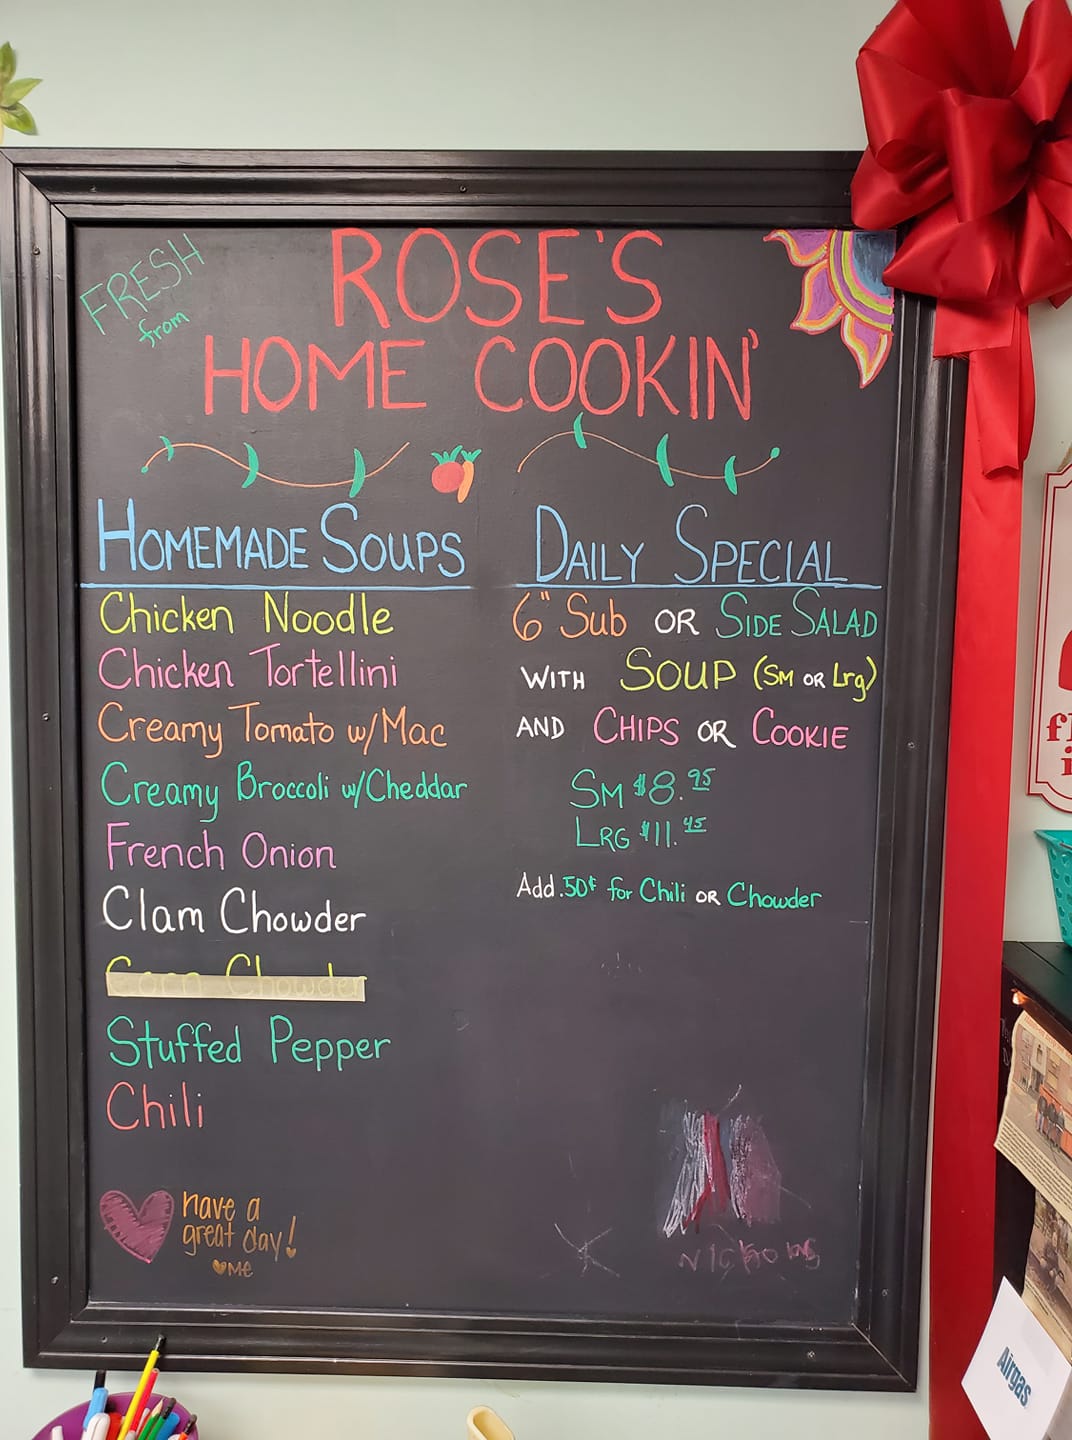 FRESH
from
ROSE'S
HOME COOKIN'
HOMEMADE SOUPS
Chicken Noodle
Chicken Tortellini
Creamy Tomato w/Mac
Creamy Broccoli w/Cheddar
French Onion
Clam Chowder
Corn Chowder
Stuffed Pepper
Chili
have a
great day!
ME
DAILY SPECIAL
6" Sub OR SIDE SALAD
WITH SOUP (SM OR Lrg)
AND CHIPS OR COOKIE
SM $8.95
LRG $11.45
Add .50¢ for Chili OR Chowder
Airgas